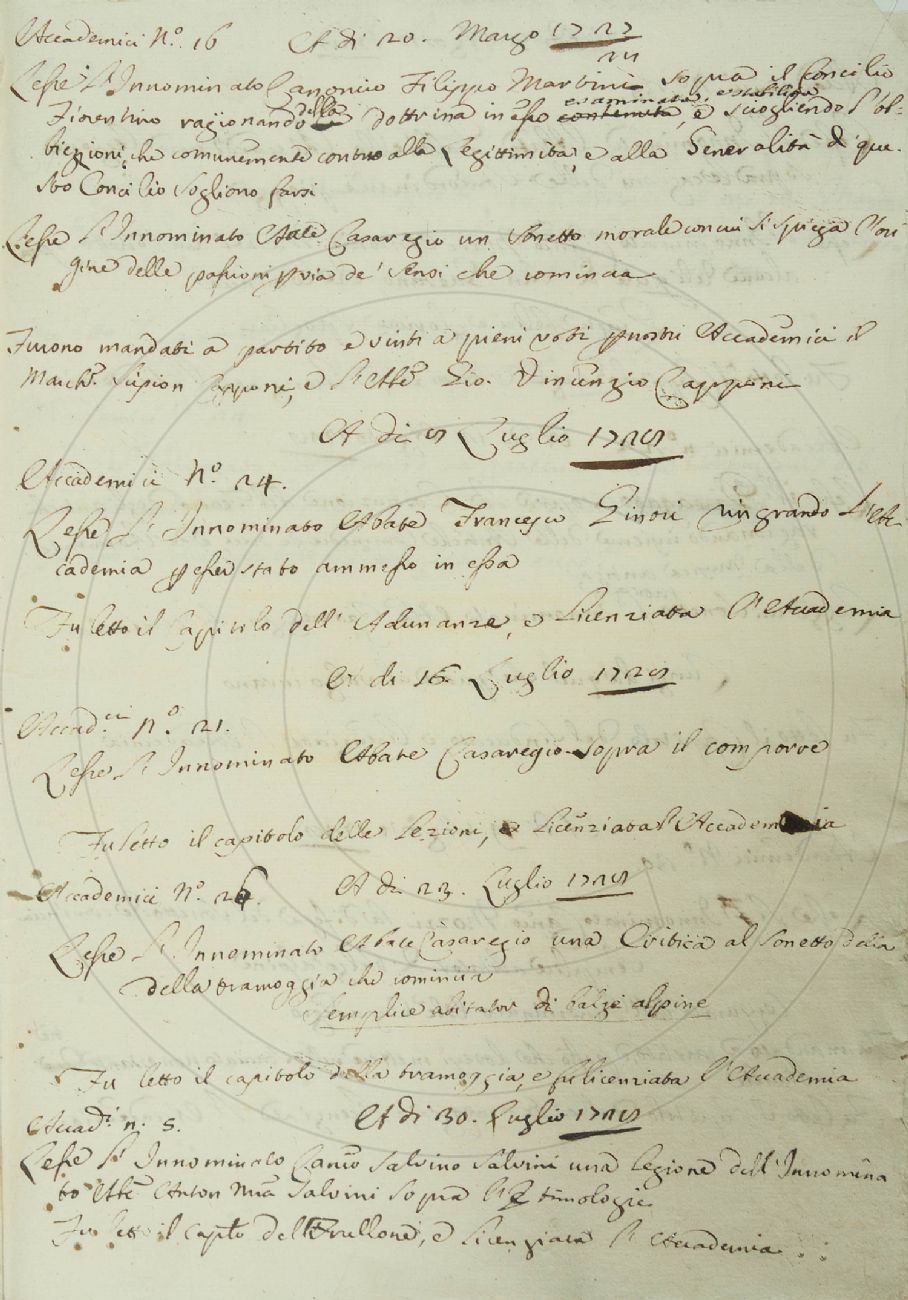 Accademici N.° 16 A dì 20. Marzo 1727
Lesse l'Innominato Canonico Filippo Martini sopra il Concilio
Fiorentino ragionando della dottrina in esso contenuta esaminata, e stabilita, e sciogliendo l'ob-
biezioni, che comunemente contro alla Legittimità, e alla Generalità di que-
sto Concilio sogliono farsi
Lesse l'Innominato Abate Casaregio un Sonetto morale con cui si spiega l'ori
gine delle passioni p via de' sensi che comincia
Furono mandati a partito e vinti a pieni voti p nostri Accademici il
March.e Scipion Capponi, e l'Ab.e Gio. Vincenzio Capponi
A dì Luglio
Accademici N.° 24.
Lesse l'Innominato Abate Francesco Ginori ringraziando l'Ac-
cademia p esser stato ammesso in essa
Fu letto il Capitolo dell'Adunanze, e Licenziata l'Accademia
A dì 16 Luglio
Accad.ci N.° 21.
Lesse l'Innominato Abate Casaregio sopra il comporre
Fu letto il capitolo delle Lezioni, e Licenziata l'Accademia
Accademici N.° 26. A dì 23. Luglio
Lesse l'Innominato Abate Casaregio una Critica al sonetto della
della tramoggia che comincia
Semplice abitator di balze alpine
Fu letto il capitolo della tramoggia, e fu licenziata l'Accademia
Accad.i n. 5. A dì 30. Luglio
Lesse l'Innominato Can.co Salvino Salvini una lezione dell'Innomina
to Ab.e Anton M.a Salvini sopra l'Etimologie
Fu letto il Cap.lo del Frullone, e Licenziata l'Accademia